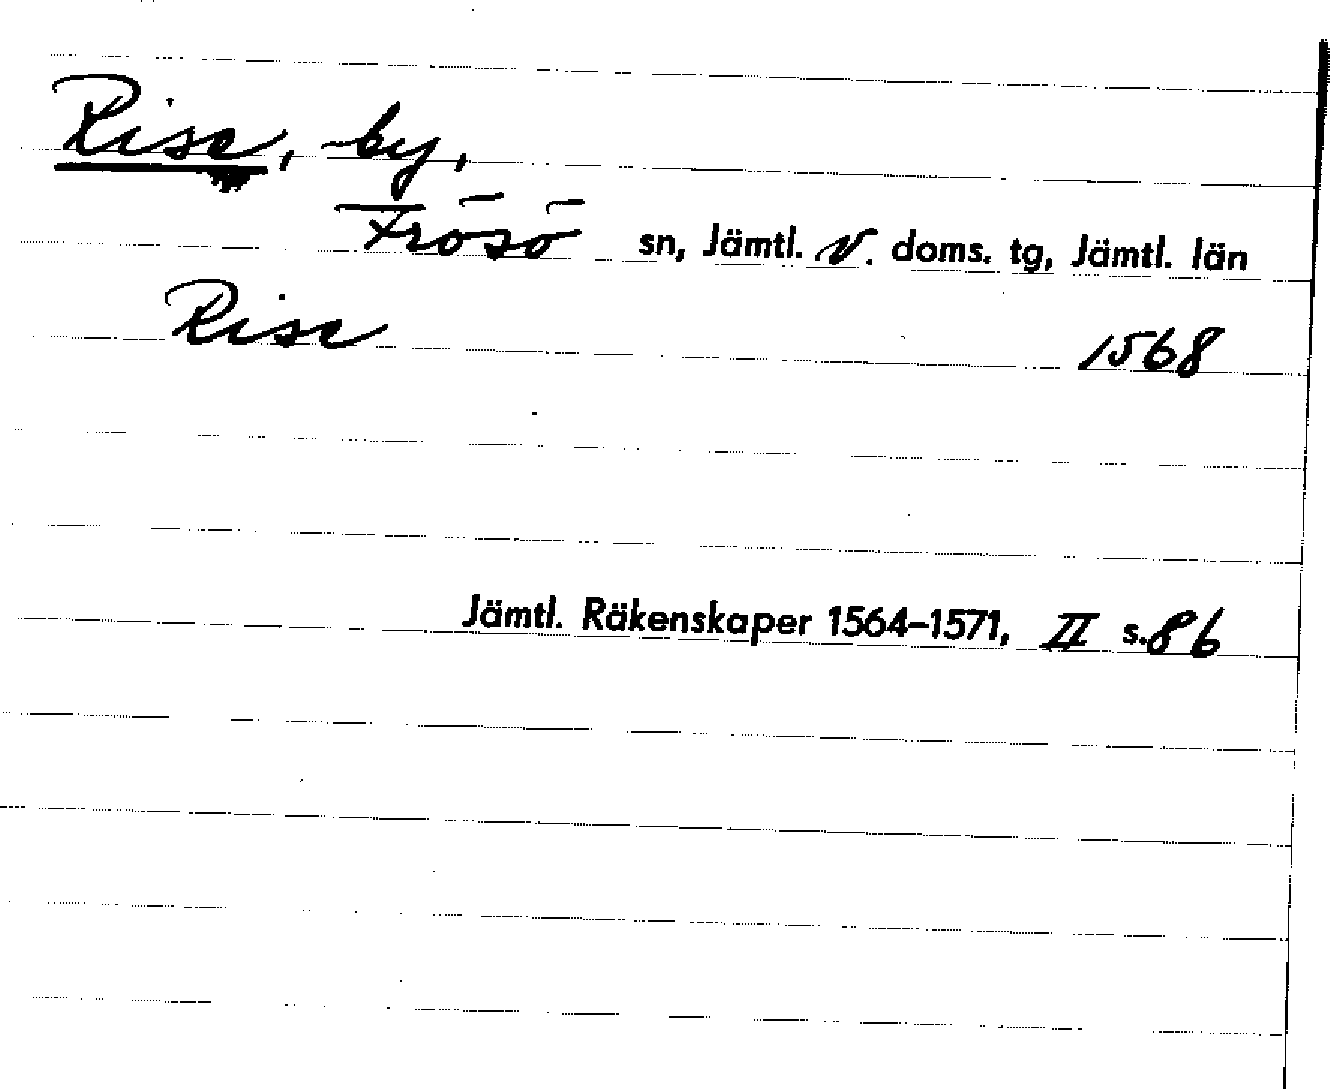 Rise, by,
Frösö sn, Jämtl. V. doms. tg, Jämtl. län
Rise 1568
Jämtl. Räkenskaper 1564–1571, II s. 86